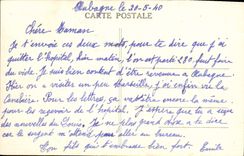 Aubagne le 20-5-40
CARTE POSTALE
Chère Maman
Je t'envoie ces deux mots, pour te dire que j'ai
quitter l'hôpital, hier matin, l'on est parti 280, pour faire
du vide. Je suis bien content d'être revenu a Aubagne
Hier on a visiter un peu Marseille, j'ai enfin vu la
Canebière. Pour les lettres, ça
pour les à l'hôpital. J'espère que tu as
des nouvelles du Louis, Je ne plus grand chose a te dire
car le sergent m'attend pour aller au bureau.
Ton fils qui t'embrasse bien fort. Emile